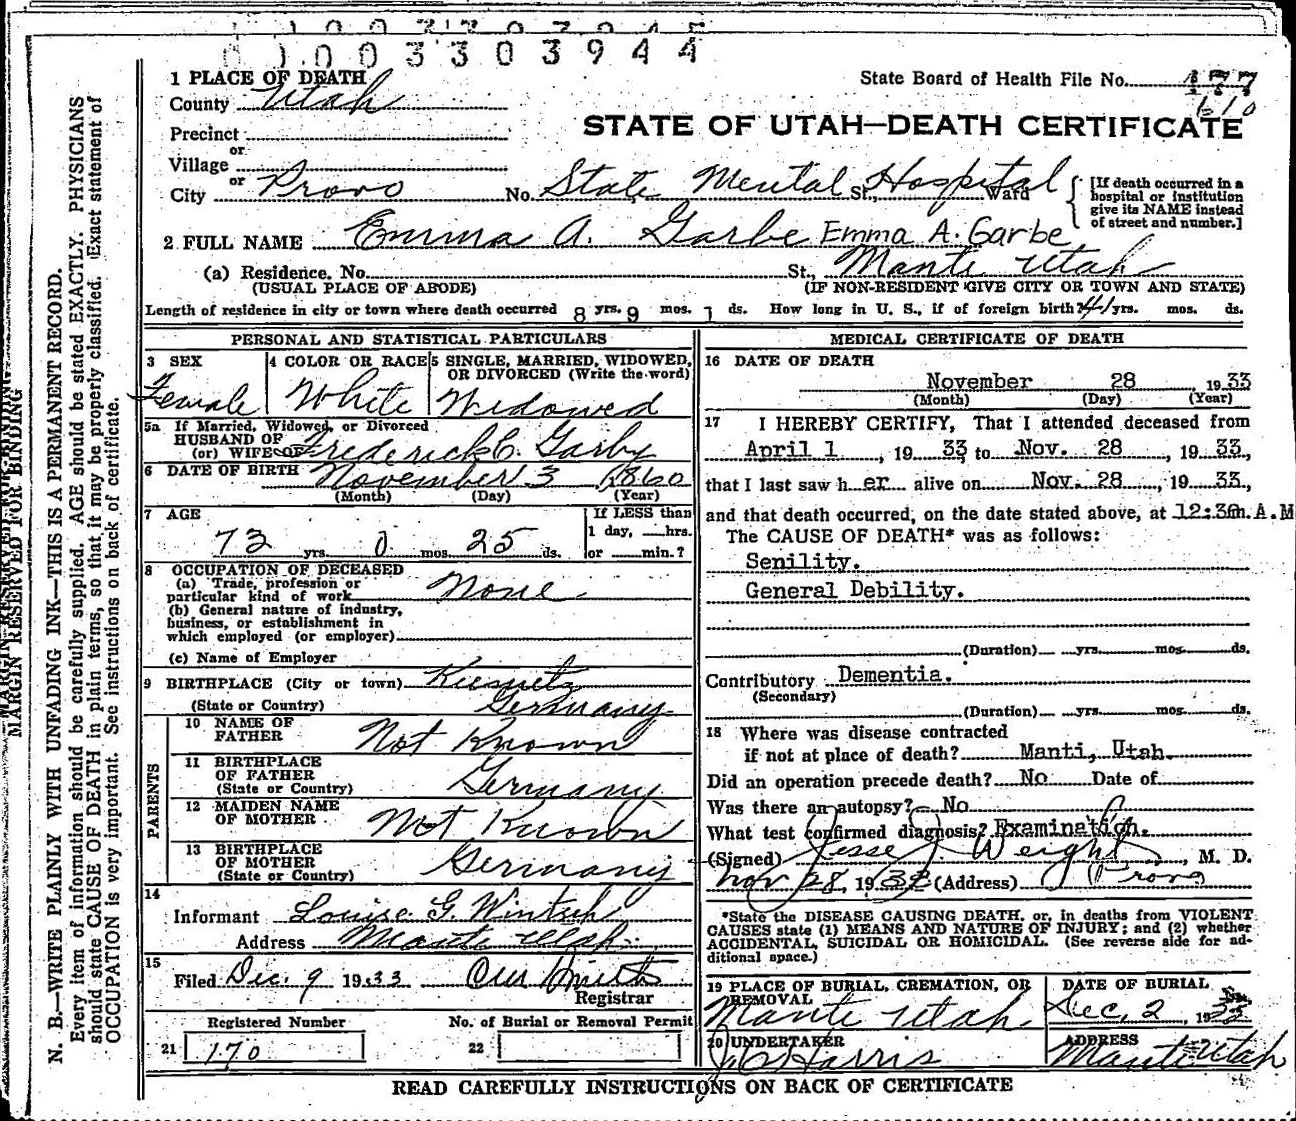 0100 3303944
1 PLACE OF DEATH
State Board of Health File No. 177
610
County Utah
STATE OF UTAH—DEATH CERTIFICATE
Precinct
or
Village
or
City Provo No. State Mental St., Hospital Ward
[If death occurred in a hospital or institution give its NAME instead of street and number.]
2 FULL NAME Emma A. Garbe Emma A. Garbe
(a) Residence. No. St., Manti Utah
(USUAL PLACE OF ABODE) (IF NON-RESIDENT GIVE CITY OR TOWN AND STATE)
Length of residence in city or town where death occurred 8 yrs. 9 mos. 1 ds. How long in U. S., if of foreign birth? 41 yrs. mos. ds.
PERSONAL AND STATISTICAL PARTICULARS
3 SEX
Female
4 COLOR OR RACE
White
5 SINGLE, MARRIED, WIDOWED, OR DIVORCED (Write the word)
Widowed
5a If Married, Widowed, or Divorced
HUSBAND OF
(or) WIFE OF Frederick C. Garby
6 DATE OF BIRTH November 3 1860
(Month) (Day) (Year)
7 AGE
73 yrs. 0 mos. 25 ds.
If LESS than
1 day, hrs.
or min.?
8 OCCUPATION OF DECEASED
(a) Trade, profession or
particular kind of work None
(b) General nature of industry,
business, or establishment in
which employed (or employer)
(c) Name of Employer
9 BIRTHPLACE (City or town)
(State or Country) Germany
PARENTS
10 NAME OF
FATHER Not Known
11 BIRTHPLACE
OF FATHER
(State or Country) Germany
12 MAIDEN NAME
OF MOTHER Not Known
13 BIRTHPLACE
OF MOTHER
(State or Country) Germany
14
Informant Louise G. Wintch
Address Manti Utah.
15
Filed Dec. 9 1933
Registrar
Registered Number
21 170
No. of Burial or Removal Permit
22
MEDICAL CERTIFICATE OF DEATH
16 DATE OF DEATH
November 28, 1933
(Month) (Day) (Year)
17 I HEREBY CERTIFY, That I attended deceased from
April 1, 1933, to Nov. 28, 1933,
that I last saw her alive on Nov. 28, 1933,
and that death occurred, on the date stated above, at 12:30m.A.M
The CAUSE OF DEATH* was as follows:
Senility.
General Debility.
(Duration) yrs. mos. ds.
Contributory Dementia.
(Secondary)
(Duration) yrs. mos. ds.
18 Where was disease contracted
if not at place of death? Manti, Utah.
Did an operation precede death? No Date of
Was there an autopsy? No
What test confirmed diagnosis? Examination.
(Signed) Jesse J. Weight, M. D.
Nov 28, 1933 (Address) Provo
*State the DISEASE CAUSING DEATH, or, in deaths from VIOLENT
CAUSES state (1) MEANS AND NATURE OF INJURY; and (2) whether
ACCIDENTAL, SUICIDAL OR HOMICIDAL. (See reverse side for ad-
ditional space.)
19 PLACE OF BURIAL, CREMATION, OR
REMOVAL
Manti Utah
DATE OF BURIAL
Dec, 2, 1933
20 UNDERTAKER
Harris
ADDRESS
Manti Utah
READ CAREFULLY INSTRUCTIONS ON BACK OF CERTIFICATE
MARGIN RESERVED FOR BINDING
N. B.—WRITE PLAINLY WITH UNFADING INK—THIS IS A PERMANENT RECORD.
Every item of information should be carefully supplied. AGE should be stated EXACTLY. PHYSICIANS
should state CAUSE OF DEATH in plain terms, so that it may be properly classified. Exact statement of
OCCUPATION is very important. See instructions on back of certificate.